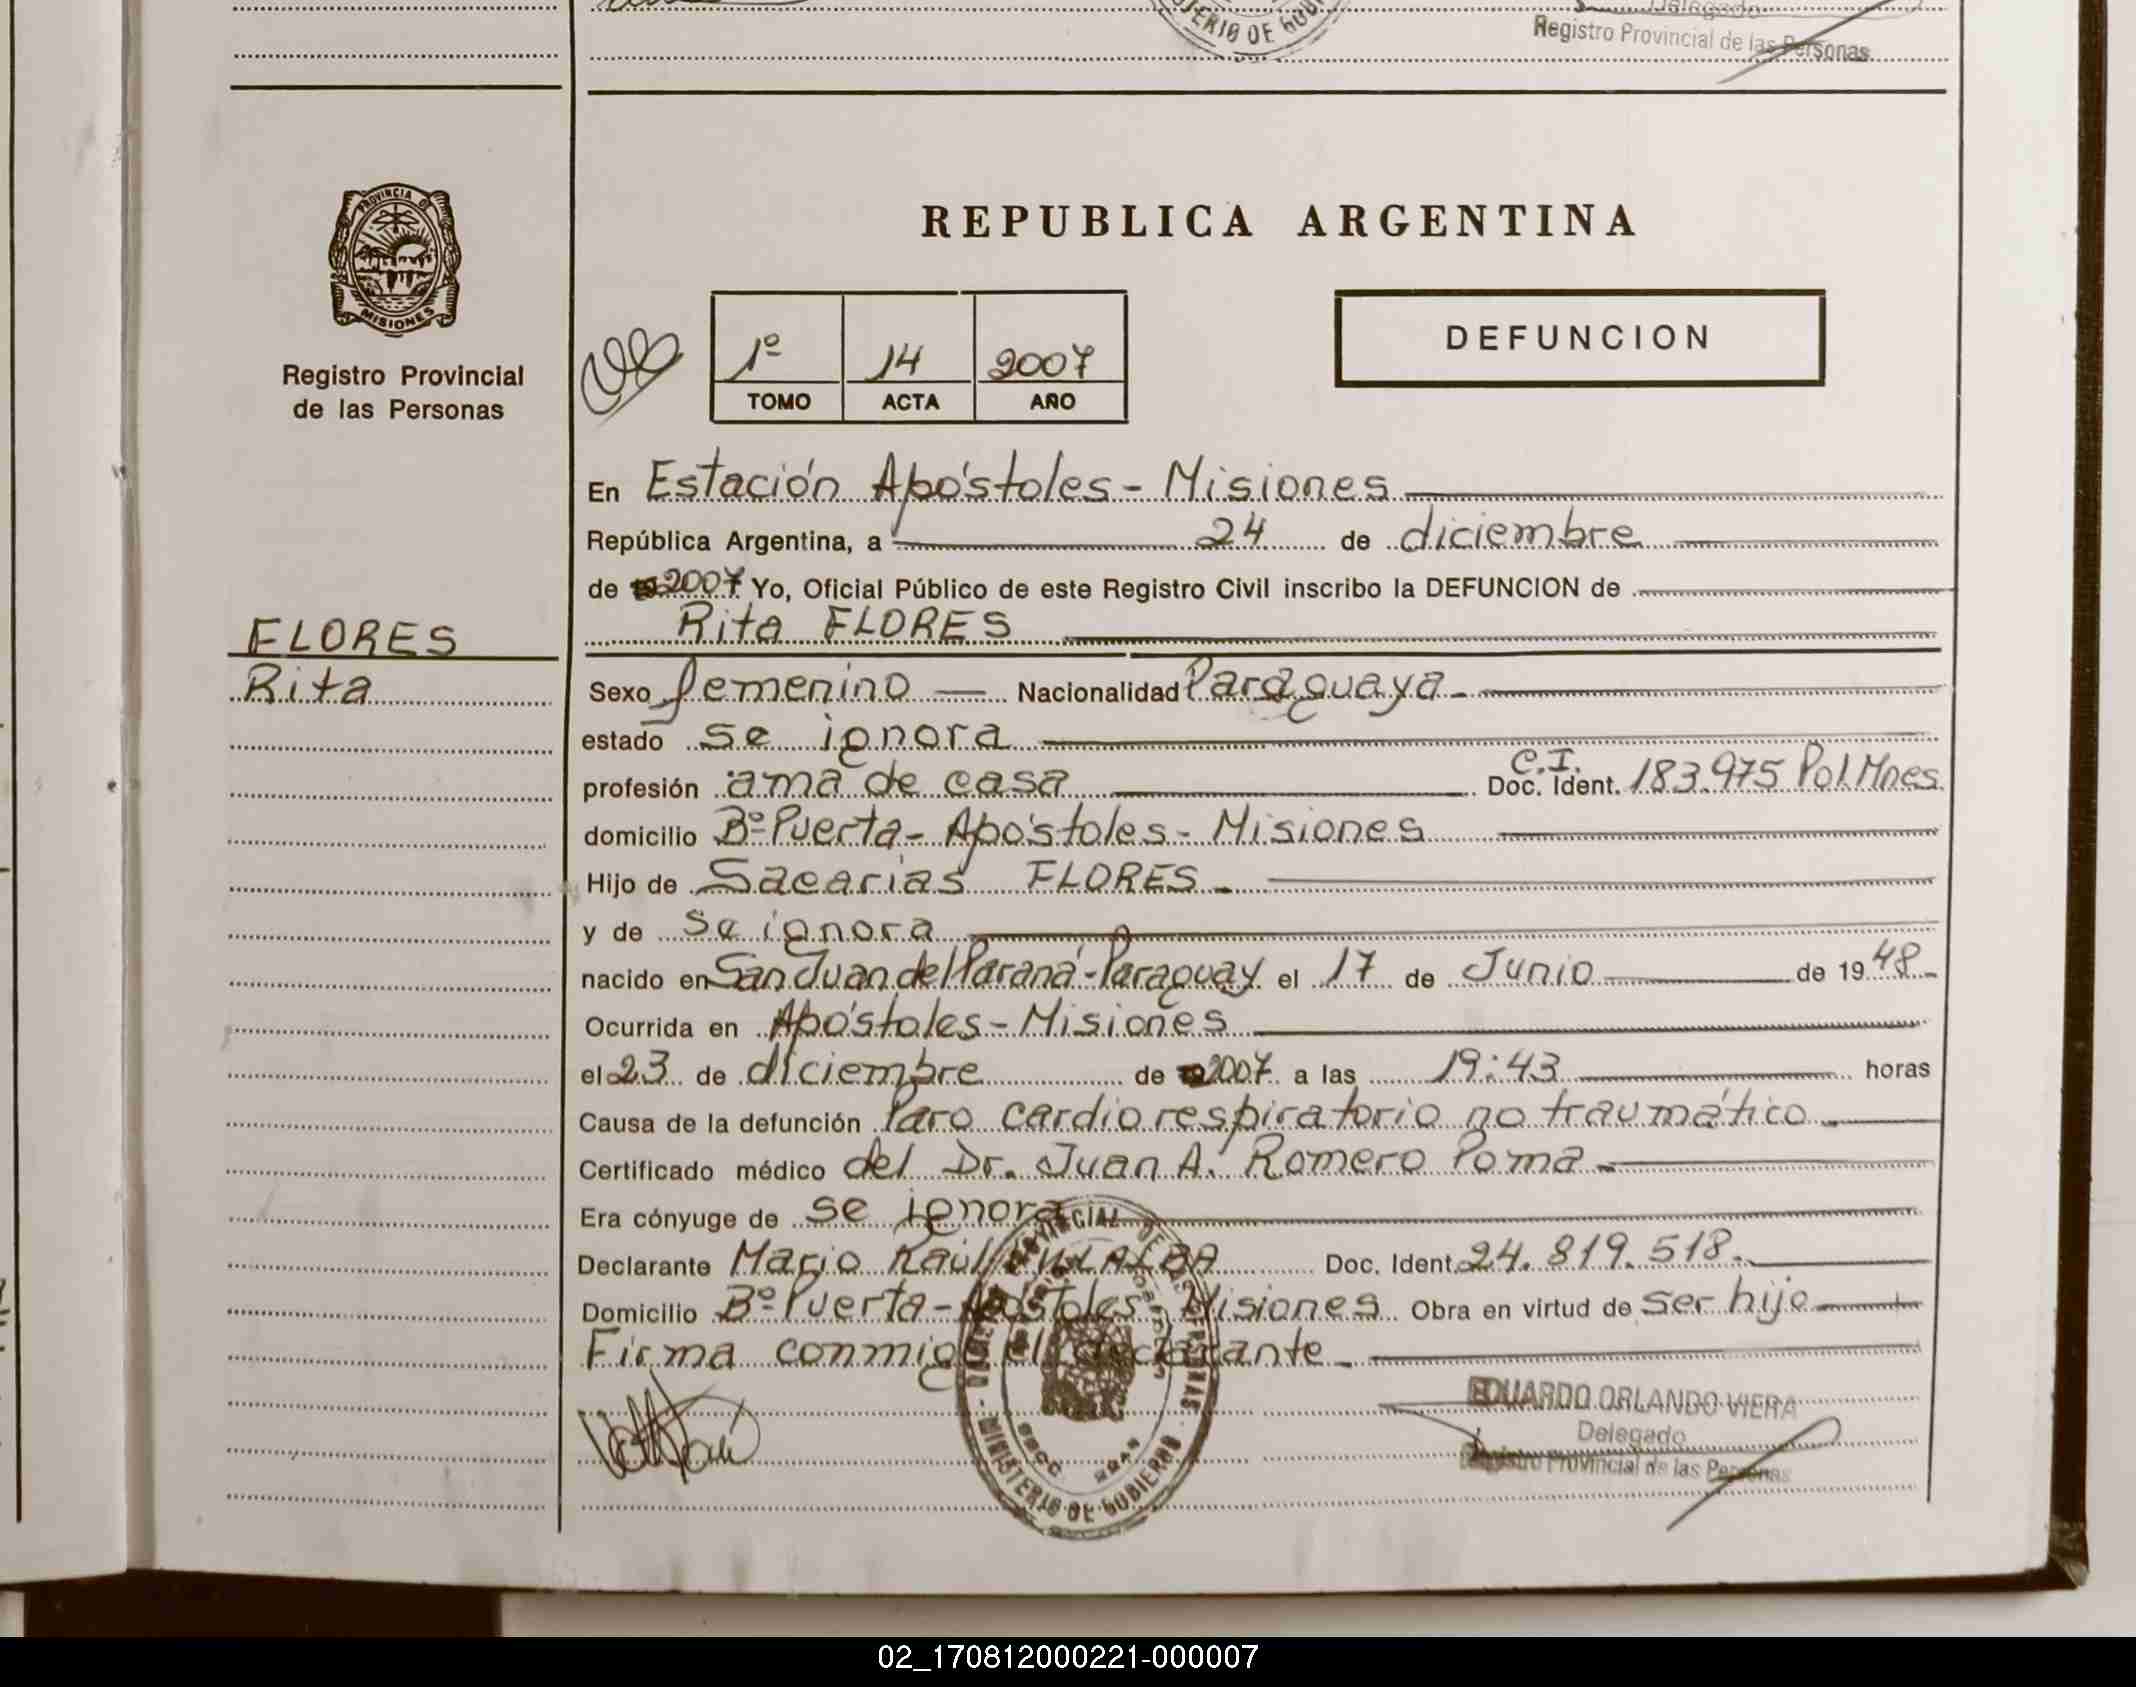 MINISTERIO DE GOBI
Delegado
Registro Provincial de las Personas
PROVINCIA DE
MISIONES
Registro Provincial
de las Personas
FLORES
Rita
REPUBLICA ARGENTINA
1º 14 2007
TOMO ACTA AÑO
DEFUNCION
En Estación Apóstoles - Misiones
República Argentina, a 24 de diciembre
de 2007 Yo, Oficial Público de este Registro Civil inscribo la DEFUNCION de
Rita FLORES
Sexo femenino Nacionalidad Paraguaya
estado se ignora
C.I.
profesión ama de casa Doc. Ident. 183.975 Pol. Mnes.
domicilio Bº Puerta - Apóstoles - Misiones
Hijo de Sacarias FLORES
y de se ignora
nacido en San Juan del Paraná - Paraguay el 17 de Junio de 1948
Ocurrida en Apóstoles - Misiones
el 23 de diciembre de 2007 a las 19:43 horas
Causa de la defunción Paro cardiorespiratorio no traumático
Certificado médico del Dr. Juan A. Romero Poma
Era cónyuge de se ignora
Declarante Mario Raúl VILLALBA Doc. Ident. 24.819.518.
Domicilio Bº Puerta - Apóstoles - Misiones Obra en virtud de ser hijo
Firma conmigo el declarante
EDUARDO ORLANDO VIERA
Delegado
Registro Provincial de las Personas
MINISTERIO DE GOBIERNO
02_170812000221-000007